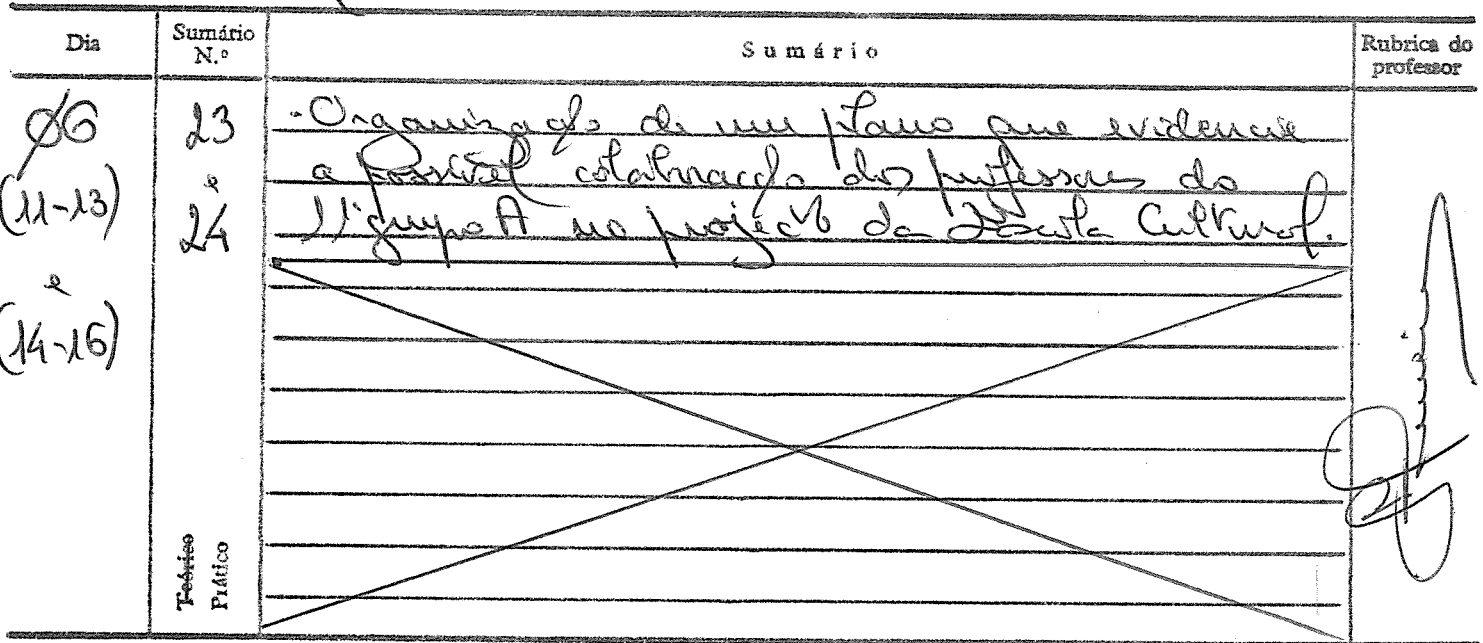 Dia
Sumário N.º
Sumário
Rubrica do professor
06
(11-13)
e
(14-16)
23
e
24
- Organização de um plano que evidencie
a possível colaboração dos professores do
11º grupo A no projecto da Escola Cultural.
Teórico
Prático